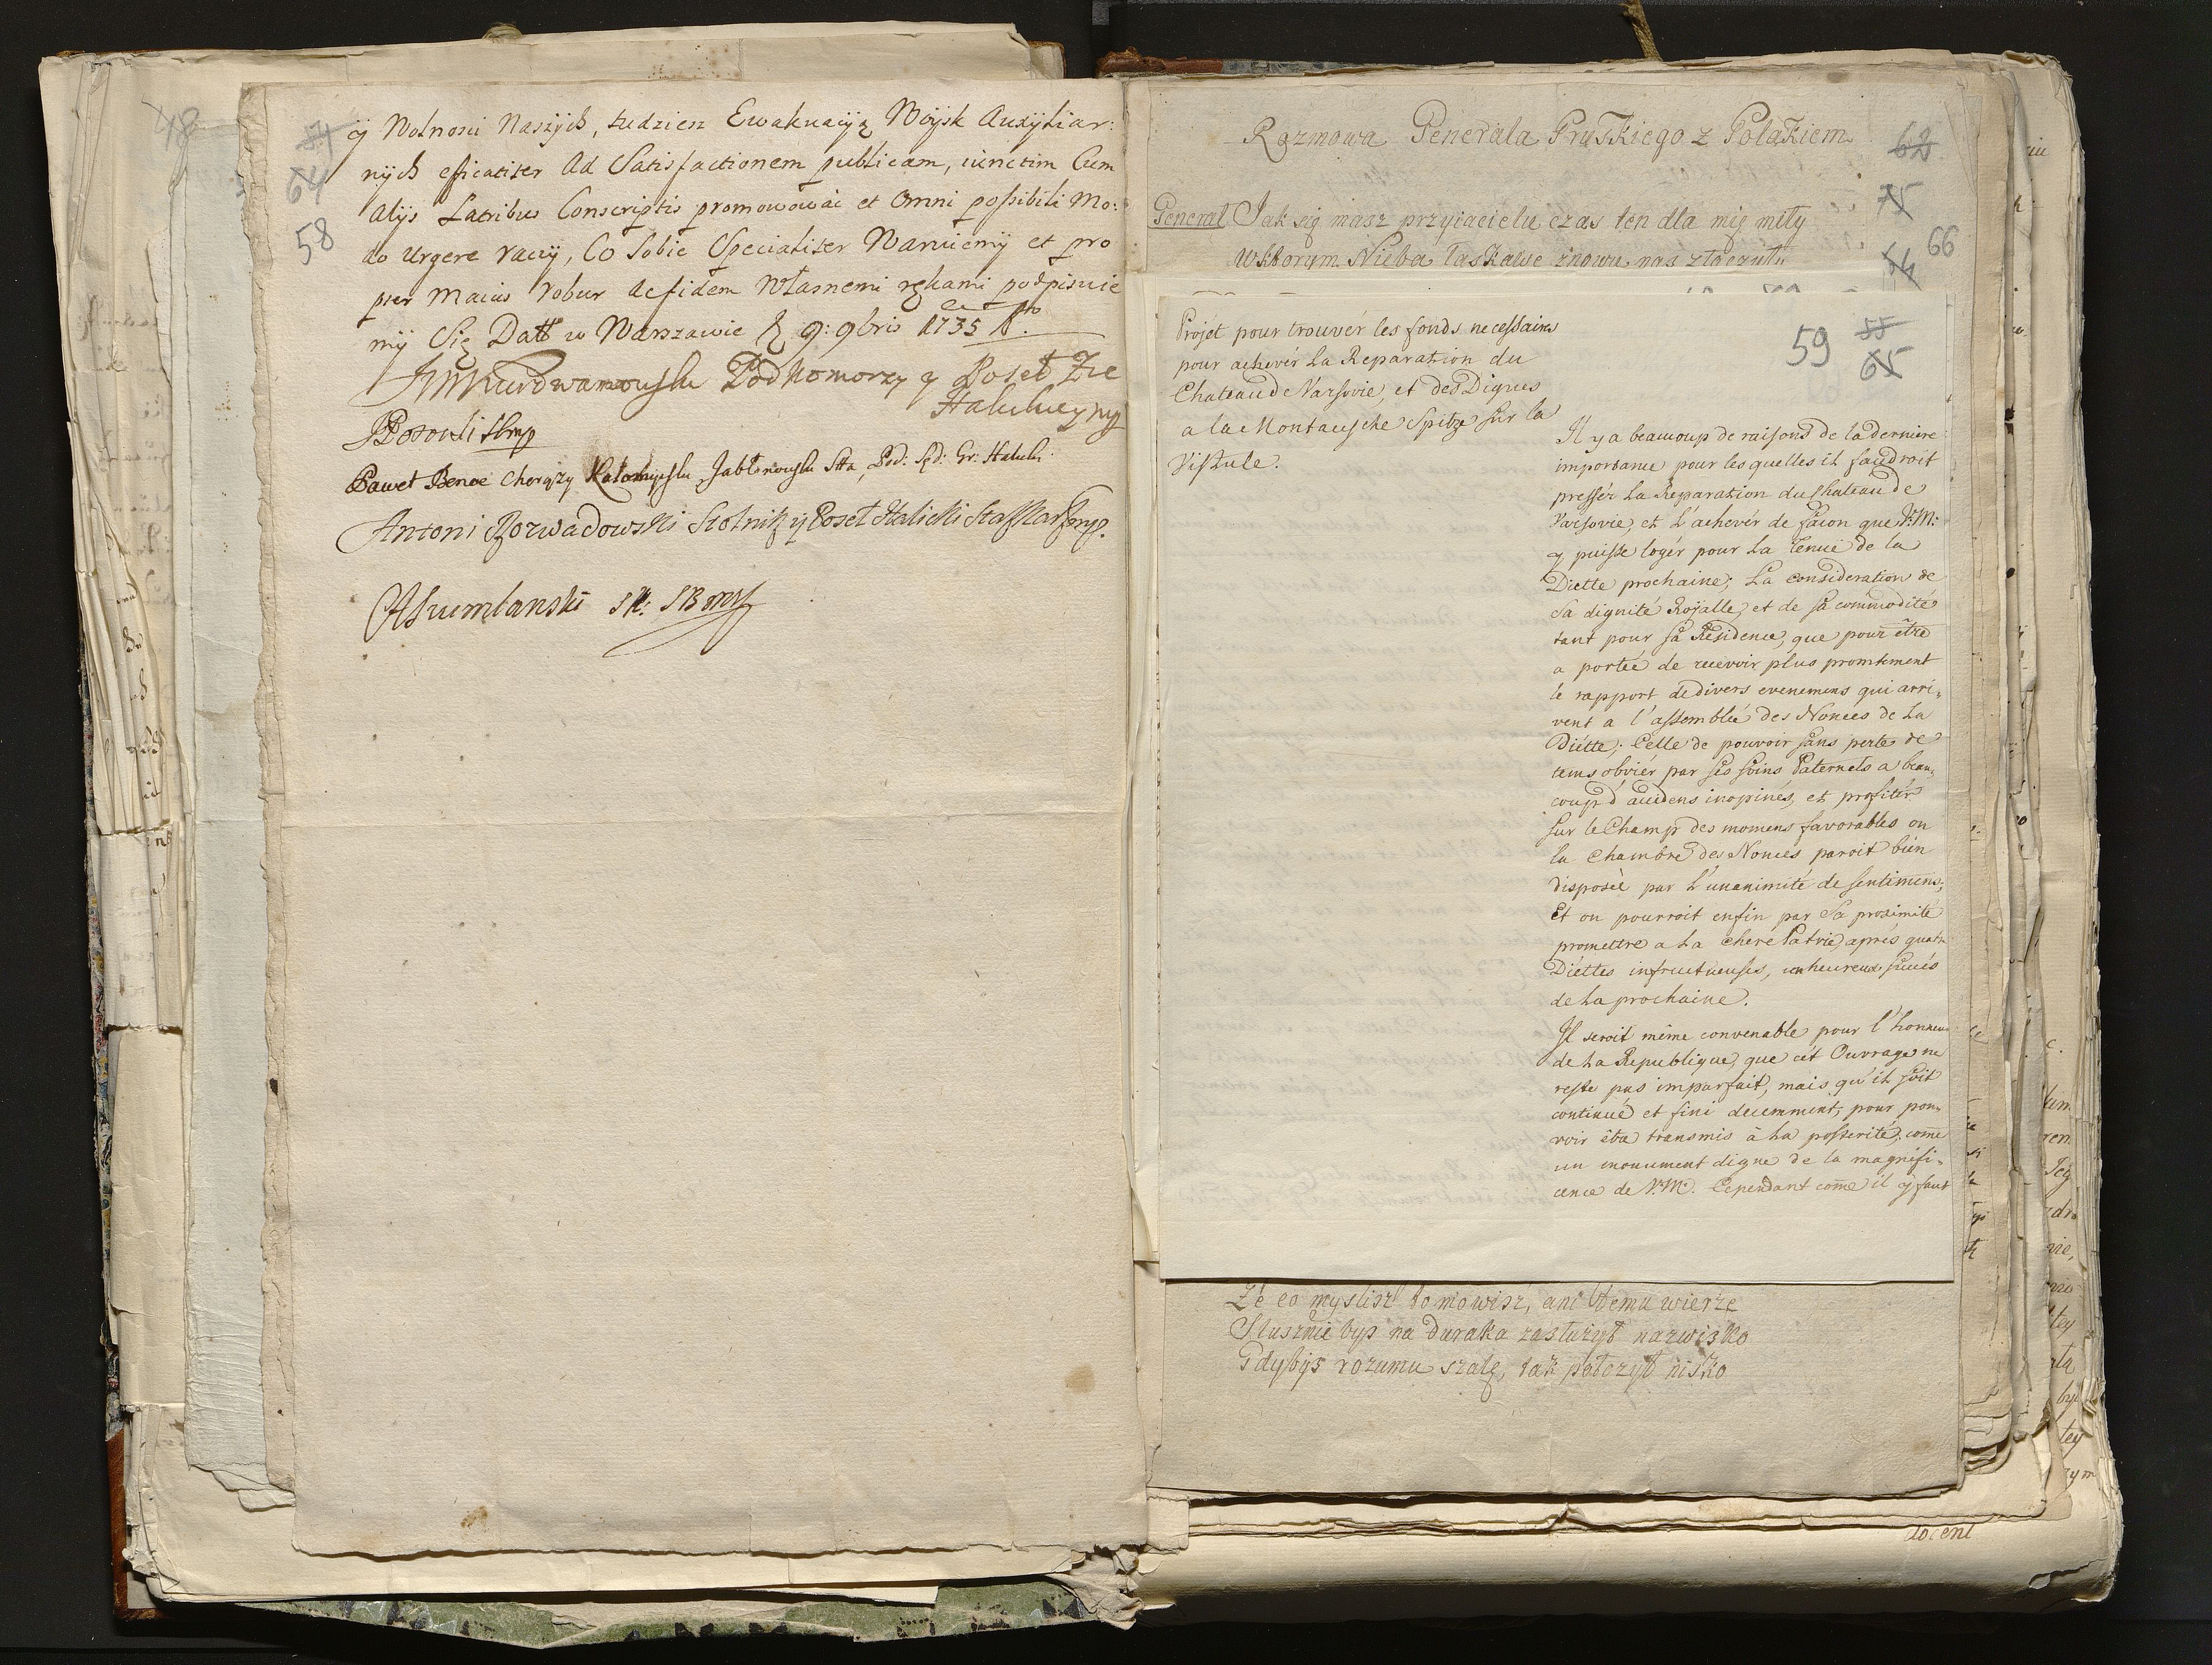 48
54
64
58
ÿ Wolnosci Naszÿch, tudziesz Ewakuacyią Woÿsk Auxÿliar:
nÿch eficaciter Ad Satisfactionem publicam, iunctim Cum
Alÿs Patribus Conscriptis promowować et Omni possibili Mo:
do Urgere racżÿ, Co Sobie Specialiter Waruiemÿ et pro
Maius robur Ac fidem Własnemi rękami podpisuie
mÿ Się Datt w Warszawie 9: 9bris 1735
Podkomorzy y Poseł Zie
Halickiey
Paweł Benoe Chorąży Kołomyiski Jabłonowski Stta, Pod: Sęd: Gr: Halicki
Antoni Rozwadowski Stolnik ÿ Poseł Halicki
ASzumlanski
Rozmowa Generała Pruskiego z Polakiem
62
75
66
64
Generał Jak się masz przyiacielu czas ten dla mię miły
Wktorym Nieba łaskawe znowu nas złączyły
Projet pour trouvér les fonds necessaires
pour achevér La Reparation du
Chateau de Varsovie, et des Digues
a la Montausche Spitze sur la
Vistule.
59
55
65
Il y a beaucoup de raisons de la derniere
importance pour les quelles il faudroit
pressér La Reparation du Chateau de
Varsovie, et L'achevér de façon que V: M:
y puisse logér pour La tenuë de la
Diette prochaine; La consideration de
Sa dignité Roÿalle, et de sa commodité
tant pour sa Residence, que pour être
a portée de recevoir plus promtement
le rapport de divers evenemens qui arri-
vent a l'assemblée des Nonces de La
Diétte; Celle de pouvoir sans perte de
tems obviér par ses soins Paternels a beau-
coup d'accidens inopinés, et profitér
sur le Champ des momens favorables ou
la Chambre des Nonces paroit bien
disposée par L'unanimité de sentimens;
Et on pourroit enfin par Sa proximité
promettre a La chere Patrie, aprés quatre
Diéttes infructueuses, un heureux succés
de La prochaine.
Il seroit même convenable pour l'honneur
de La Republique, que cét Ouvrage ne
reste pas imparfait, mais qu'il soit
continué et fini decemment, pour pou-
voir être transmis à La posterité, come
un monument digne de la magnifi-
cence de V: M. Cependant come il y faut
Że co myslisz to mowisz, ani temu wierzę
Słusznie bys na Duraka zasłużył nazwisko
Gdybÿs rozumu szalę, tak położył nisko
docent